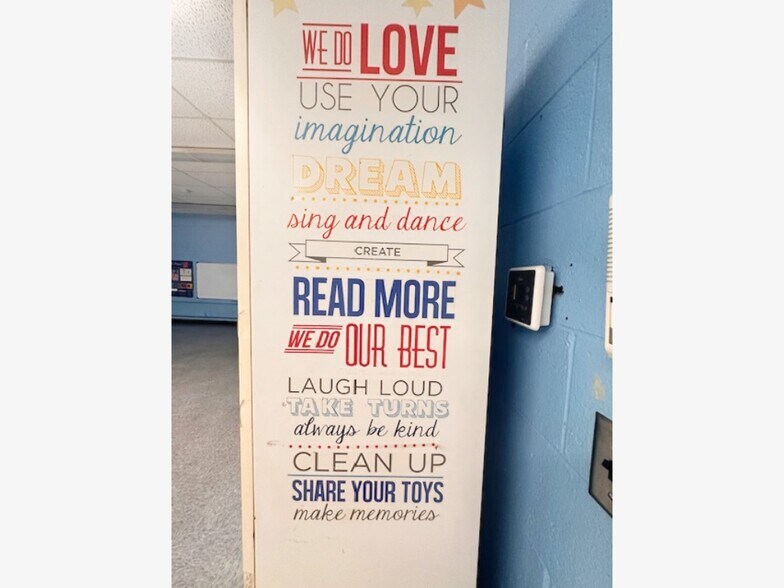 WE DO LOVE
USE YOUR
imagination
DREAM
sing and dance
CREATE
READ MORE
WE DO OUR BEST
LAUGH LOUD
TAKE TURNS
always be kind
CLEAN UP
SHARE YOUR TOYS
make memories